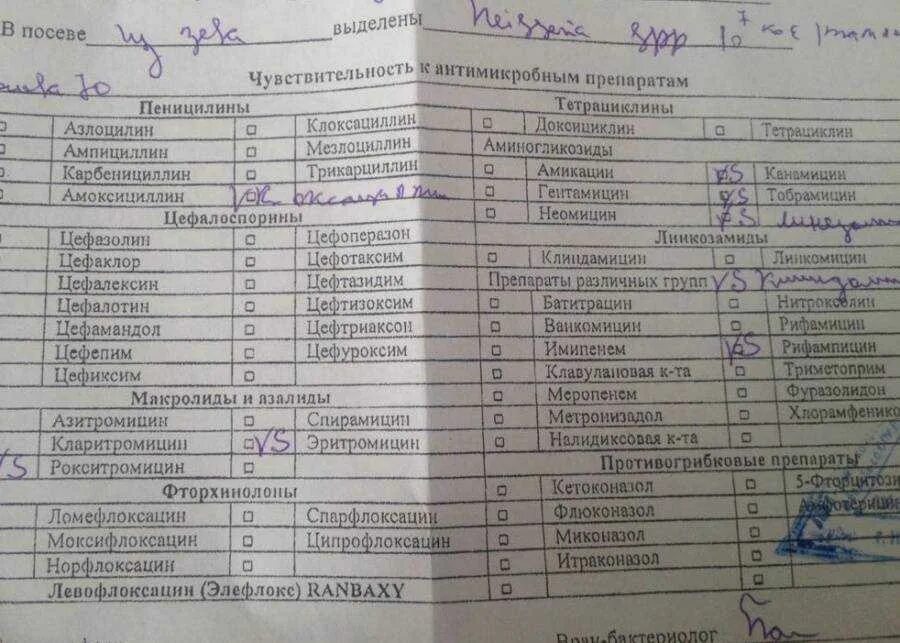 В посеве из зева выделены Neisseria spp 10^7 кое
Чувствительность к антимикробным препаратам
Пенициллины
Азлоцилин □ Клоксациллин
Ампициллин □ Мезлоциллин
Карбенициллин □ Трикарциллин
Амоксициллин
Цефалоспорины
Цефазолин □ Цефоперазон
Цефаклор □ Цефотаксим
Цефалексин □ Цефтазидим
Цефалотин □ Цефтизоксим
Цефамандол □ Цефтриаксон
Цефепим □ Цефуроксим
Цефиксим □
Макролиды и азалиды
Азитромицин □ Спирамицин
Кларитромицин □ VS Эритромицин
VS Рокситромицин □
Фторхинолоны
Ломефлоксацин □ Спарфлоксацин
Моксифлоксацин □ Ципрофлоксацин
Норфлоксацин □
Левофлоксацин (Элефлокс) RANBAXY
Тетрациклины
□ Доксициклин □ Тетрациклин
Аминогликозиды
□ Амикацин VS Канамицин
□ Гентамицин VS Тобрамицин
□ Неомицин VS
Линкозамиды
□ Клиндамицин □ Линкомицин
Препараты различных групп VS
□ Батитрацин □ Нитроксолин
□ Ванкомицин □ Рифамицин
□ Имипенем VS Рифампицин
□ Клавулановая к-та □ Триметоприм
□ Меропенем □ Фуразолидон
□ Метронизадол □ Хлорамфенико
□ Налидиксовая к-та □
Противогрибковые препараты
□ Кетоконазол □ 5-Фторцитози
□ Флюконазол □
□ Миконазол □
□ Итраконазол □
□ □
Врач-бактериолог